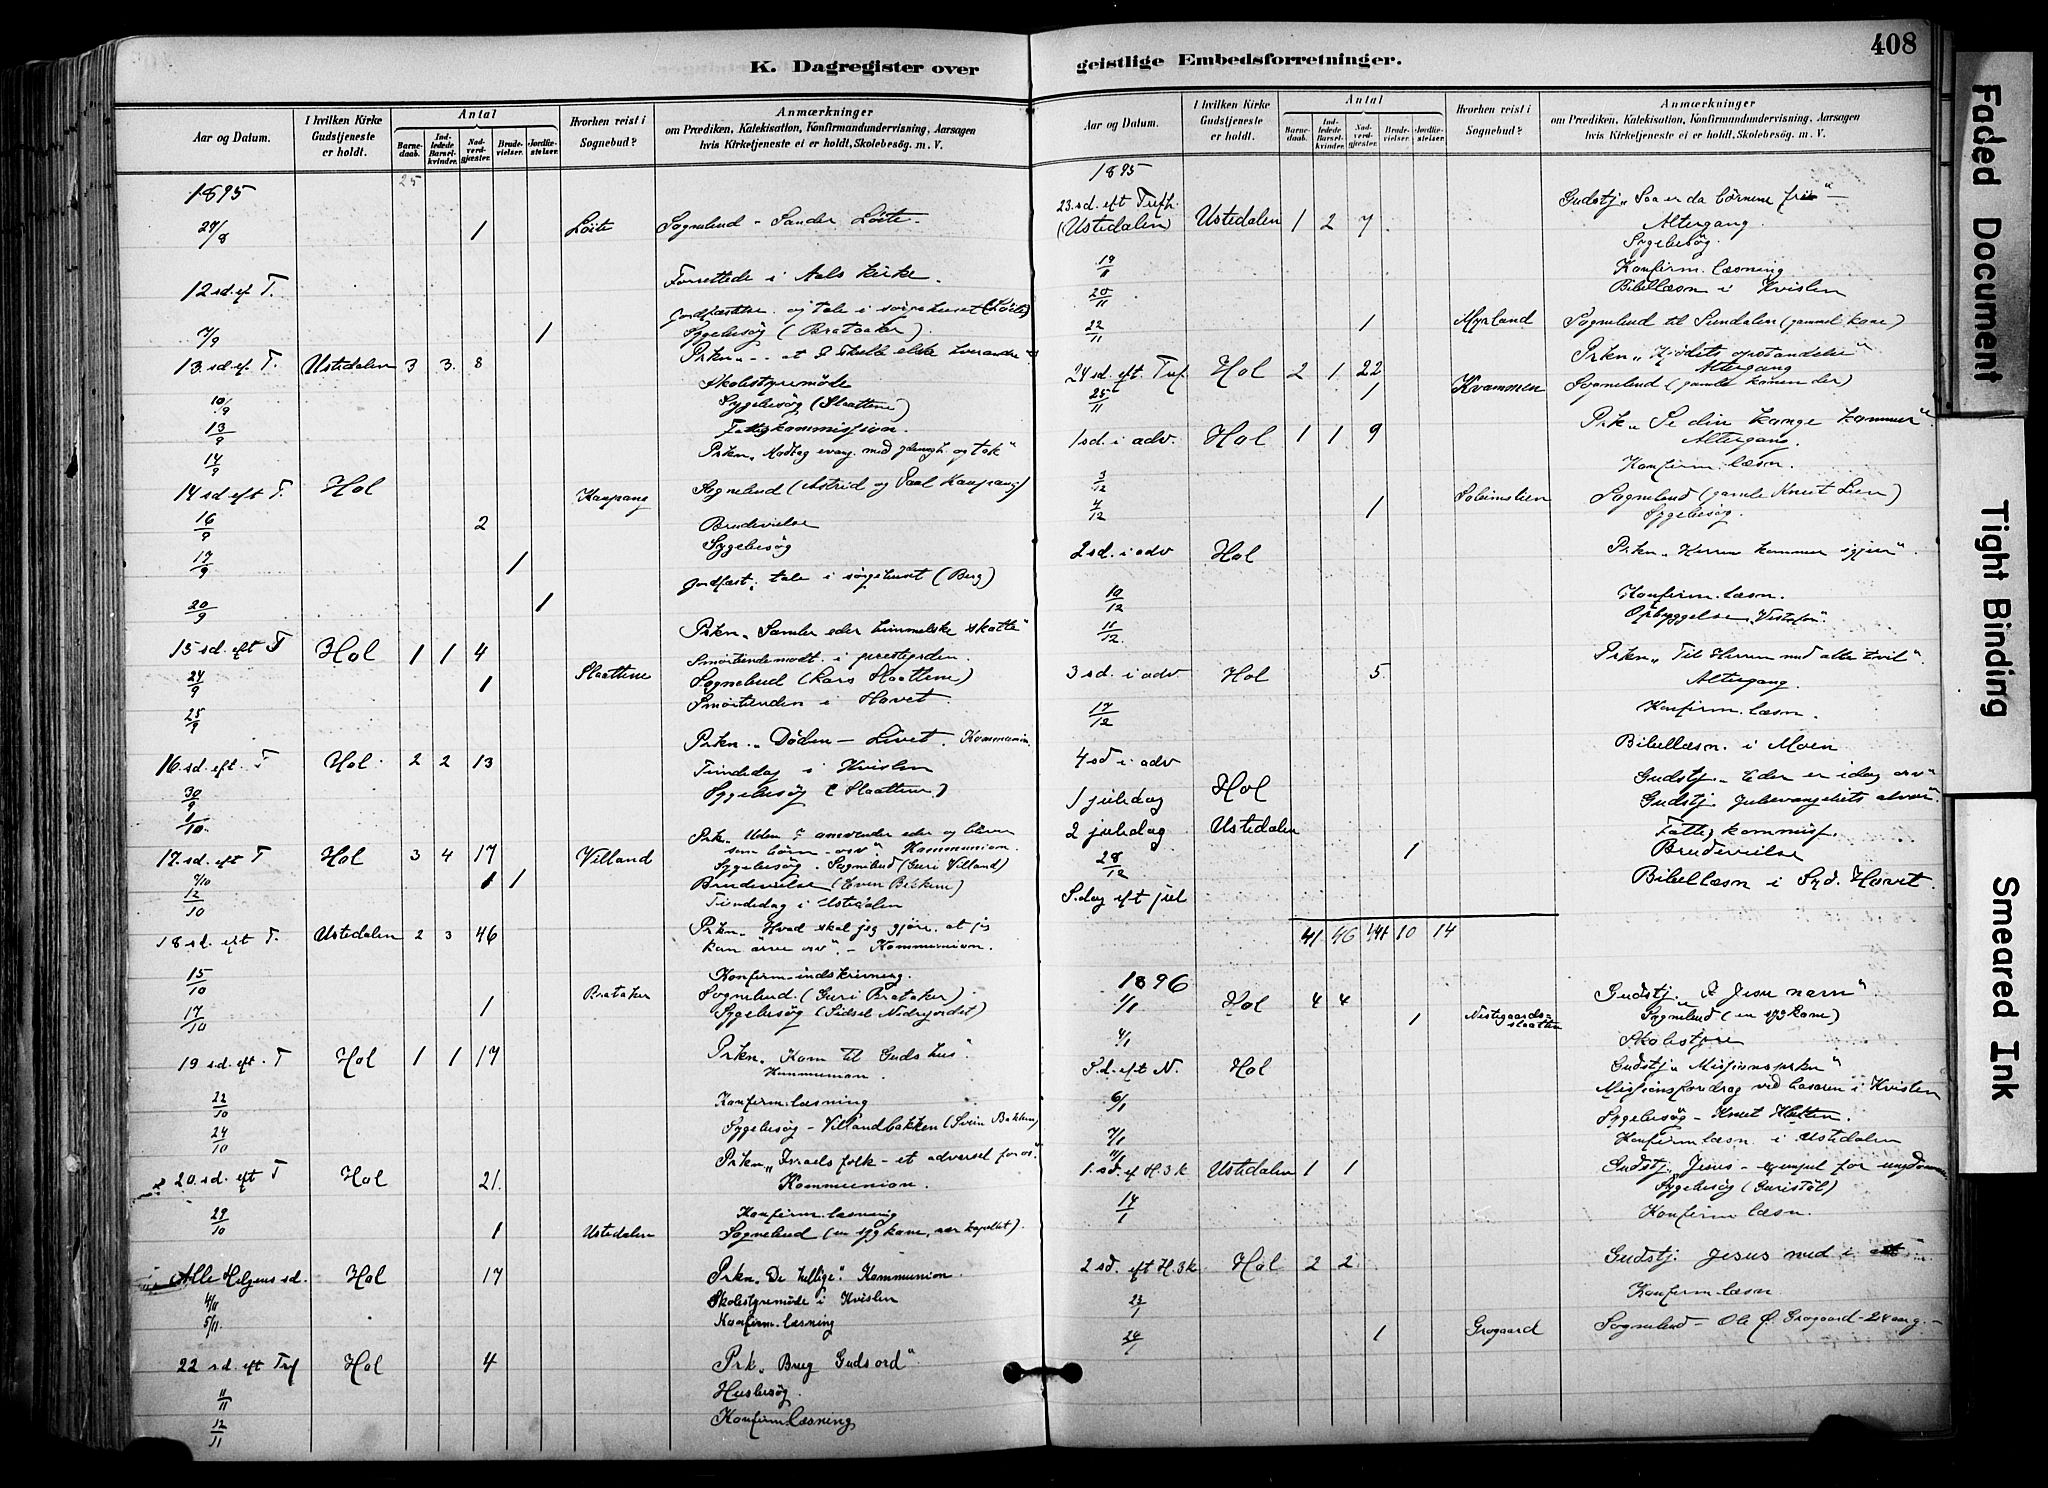 408
K. Dagregister over
Aar og Datum.
I hvilken Kirke Gudstjeneste er holdt.
Antal
Barnedaab.
Indledede Barselkvinder.
Nadverdgjæster.
Brudevielser.
Jordfæstelser.
Hvorhen reist i Sognebud?
Anmærkninger
om Prædiken, Katekisation, Konfirmandundervisning, Aarsagen
hvis Kirketjeneste ei er holdt, Skolebesøg. m. V.
25
1895
27/8 1 Löite Sognebud - Sander Löite.
12 sd. ef. T. Forrettede i Aals kirke.
og tale i sørgehuset (Löite)
7/9 1 Sygebesøg (Brataaker).
13. sd. ef. T. Ustedalen 3 3. 8 Prkn. " - - at I skulle elske hverandre"
Skolestyremöde
10/9 Sygebesøg (Slaattene)
13/9 Fattigkommission.
14/9 Prkn. "Modtag evang. med og tak"
14 sd eft T. Hol Kaupang Sognebud (Astrid og Paal Kaupang)
16/9 2 Brudevielse
17/9 1 Sygebesøg
Jordfæst. tale i sørgehuset (Berg)
20/9 1
15 sd. eft T Hol 1 1 4 Prkn. "Samler eder himmelske skatte"
24/9 1 Slaattene Sognebud (Lars Slaattene)
25/9 i Hovet.
16. sd. eft. T Hol. 2 2 13 Prkn. "Døden - Livet. Kommunion.
30/9 Tiendedag i Kvislen
1/10. Sygebesøg (Slaattene)
17. sd. eft T Hol 3 4 17 Villand Prk. "Uden I omvender eder og bliver
som børn - osv" Kommunion.
Sygebesøg. Sognebud (Guri Villand)
9/10 1 1 Brudevielse (Even Bekkem)
12/10 Tiendedag i Ustedalen
18 sd. eft T. Ustedalen 2 3 46 Prkn. "Hvad skal jeg gjøre, at jeg
kan ärve osv" - Kommunion.
15/10 Konfirm-indskrivning.
Brataker Sognebud. (Guri Brataker)
17/10 1 Sygebesøg (Sidsel Nidrejordet)
19 sd. eft. T Hol 1 1 17 Prkn. "Kom til Guds hus"
Kommunion.
22/10 Konfirm. læsning
24/10 Sygebesøg - Villandbakken (Svein Bakken)
20. sd. eft T Hol 21. Prkn. "Israels folk - et advarsel for os."
Kommunion.
29/10 Konfirm. læsning
1 Ustedalen Sognebud (en syg kone, nær kapellet).
Alle Helgens sd. Hol 17 Prkn. "De hellige". Kommunion.
4/11 Skolestyremøde i Kvislen
5/11. Konfirm. læsning
22 sd. eft Trf Hol 4 Prk. "Brug Guds ord".
11/11 Husbesøg.
12/11 Konfirm. læsning
geistlige Embedsforretninger.
Aar og Datum.
I hvilken Kirke Gudstjeneste er holdt.
Antal
Barnedaab.
Indledede Barselkvinder.
Nadverdgjæster.
Brudevielser.
Jordfæstelser.
Hvorhen reist i Sognebud?
Anmærkninger
om Prædiken, Katekisation, Konfirmandundervisning, Aarsagen
hvis Kirketjeneste ei er holdt, Skolebesøg. m. V.
1895
23. sd. eft Trefh. (Ustedalen) Ustedalen 1 2 7. Gudstj. "Saa er da børnene fri" -
Altergang.
Sygebesøg.
19/11 Konfirm. læsning
20/11 Bibellæsn i Kvislen
22/11 1 Myrland Sognebud til Sundalen (gammel kone)
24 sd. eft. Tref. Hol 2 1. 22 Prkn "Kjødets opstandelse"
Altergang
25/11 1 Kvammen Sognebud (gamle konen der)
1 sd. i adv. Hol 1 1 9 Prk. "Se din konge kommer".
Altergang.
3/12 Konfirm. læsn.
4/12 1 Soleimslien Sognebud (gamle Knut Lien)
Sygebesøg.
2 sd. i adv Hol Prkn. "Herren kommer igjen".
10/12 Konfirm. læsn.
11/12. Opbyggelse
3 sd. i adv Hol 5. Prkn. "Til Herren med alle tvil"
Altergang.
17/12 Konfirm. læsn.
4 sd i adv Bibellæsn. i Moen
1 juledag Hol Gudstj. "Eder er idag osv"
2 juledag Ustedalen Gudstj. Juleevangeliets alvor".
Fattigkommiss.
28/12 1 Brudevielse
S.dag eft jul Bibellæsn i Syd. Hovet.
41 46 10 14
1896
1/1 Hol 4 4 Gudstj. "I Jesu navn".
1 Nestegaards-slaatten Sognebud (en syg kone)
4/1 Skolestyre
S.d. eft N. Hol Gudstj. "Missionsprkn"
6/1 Missionsforedrag ved basaren i Kvislen
7/1 Sygebesøg - Knut
11/1 Konfirm læsn. i Ustedalen
1. sd. ef H. 3 k Ustedalen 1 1 Gudstj. "Jesus - exempel for ungdommen
Sygebesøg (Guristöl)
17/1 Konfirm læsn.
2 sd. eft H. 3 k Hol 2 2. Gudstj. Jesus med i alt
23/1 Konfirm læsn.
24/1 1 Grøgaard Sognebud - Ole Ø. Grøgaard - 24 aarg. -
Faded Document
Tight Binding
Smeared Ink